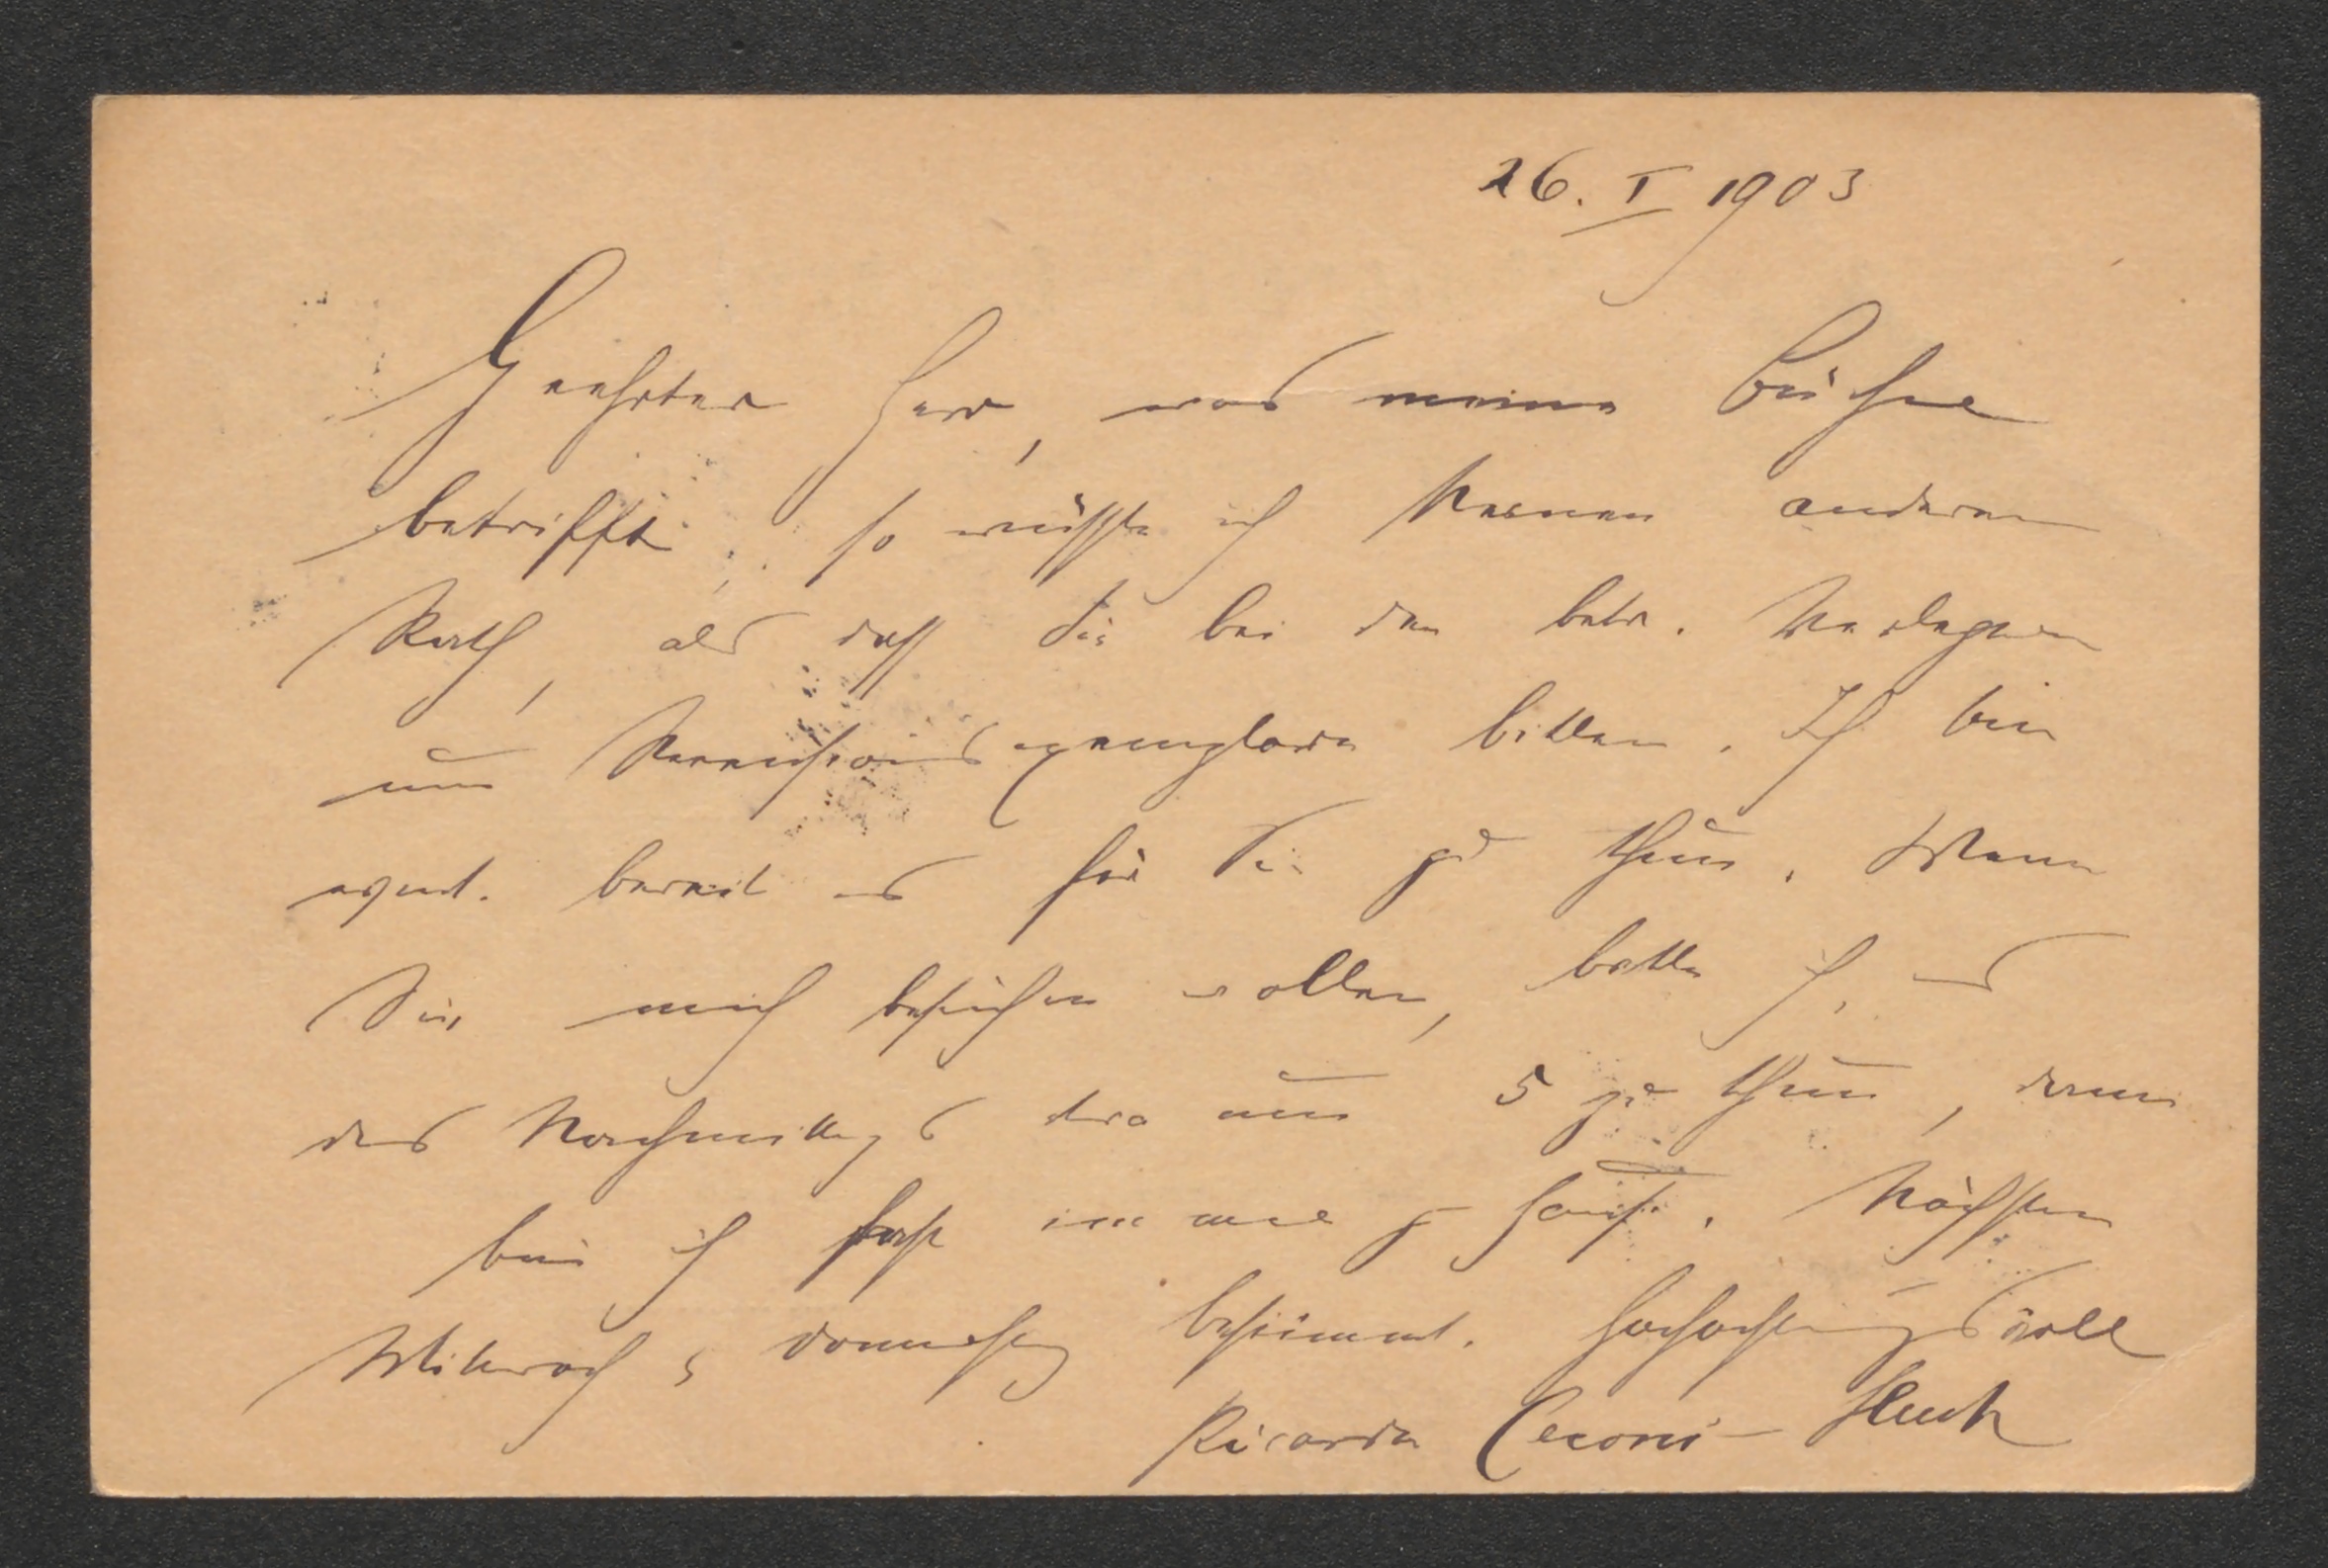 26. I 1903
Geehrter Herr, was meine Bücher
betrifft, so wüsste ich keinen anderen
Rath, als dass Sie bei den betr. Verlegern
um Recensionsexemplare bitten. Ich bin
event. bereit es für Sie zu thun. Wenn
Sie mich besuchen wollen, bitte ich, es
des Nachmittags etwa um 5 zu thun, dann
bin ich fast immer z Hause. Nächsten
Mittwoch u Donnerstag bestimmt. Hochachtungsvoll
Ricarda Ceconi-Huch